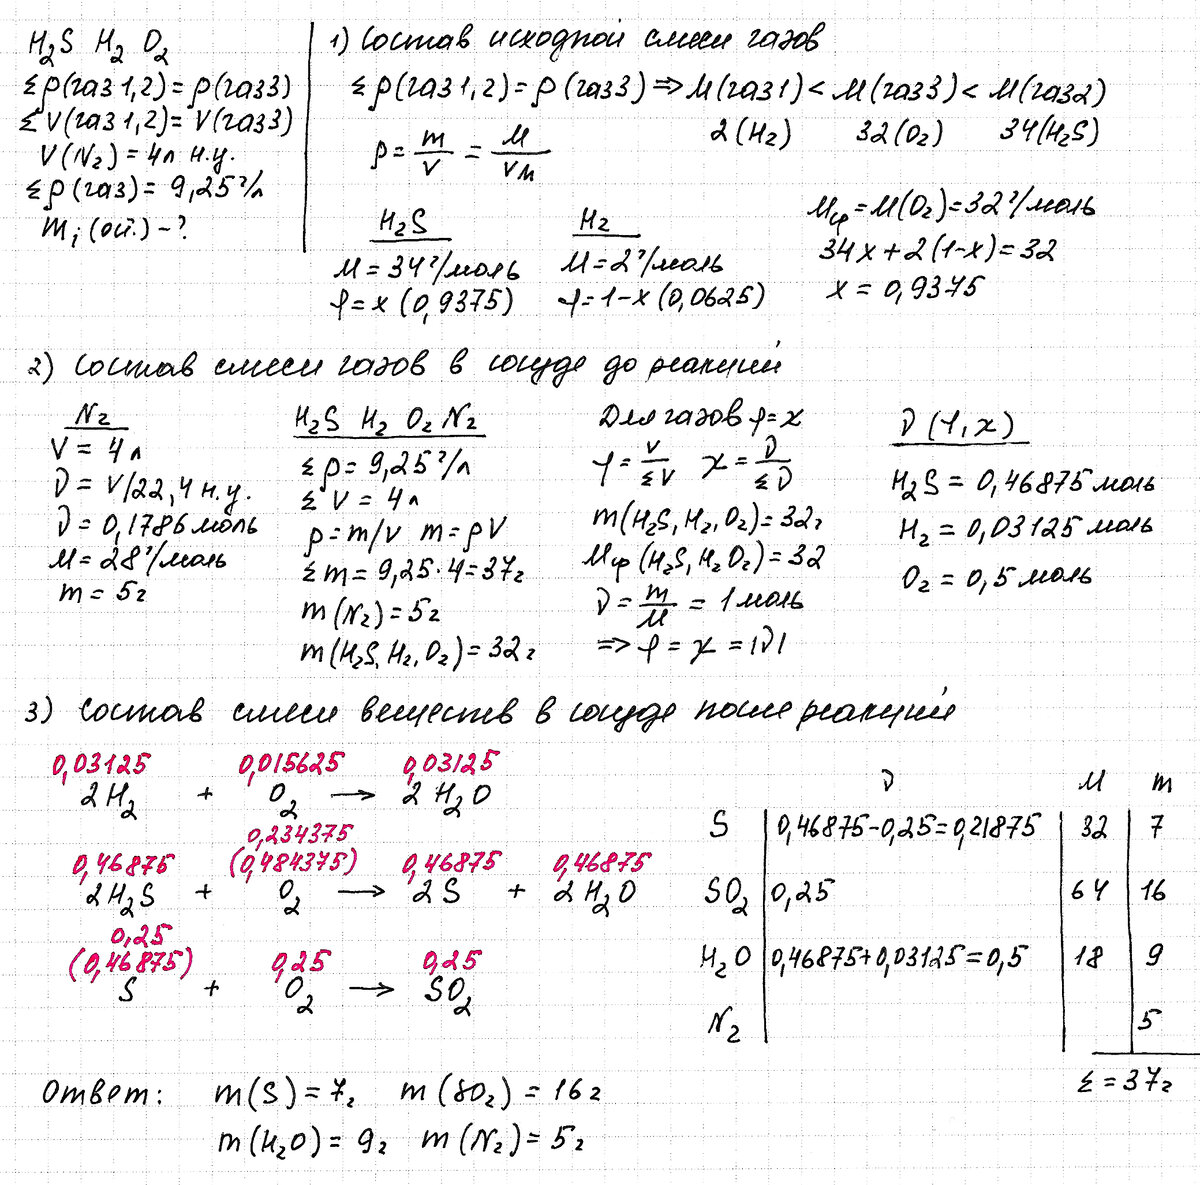 H₂S H₂ O₂
Σρ(газ1,2) = ρ(газ3)
ΣV(газ1,2) = V(газ3)
V(N₂) = 4л н.у.
Σρ(газ) = 9,25 г/л
mᵢ(ост.) - ?
1) Состав исходной смеси газов
Σρ(газ1,2) = ρ(газ3) ⇒ M(газ1) < M(газ3) < M(газ2)
2(H₂) 32(O₂) 34(H₂S)
ρ = m/V = M/Vм
H₂S
M = 34 г/моль
φ = x (0,9375)
H₂
M = 2 г/моль
φ = 1-x (0,0625)
Mср = M(O₂) = 32 г/моль
34x + 2(1-x) = 32
x = 0,9375
2) Состав смеси газов в сосуде до реакций
N₂
V = 4л
ν = V/22,4 н.у.
ν = 0,1786 моль
M = 28 г/моль
m = 5г
H₂S H₂ O₂ N₂
Σρ = 9,25 г/л
ΣV = 4л
ρ = m/V m = ρV
Σm = 9,25·4 = 37г
m(N₂) = 5г
m(H₂S, H₂, O₂) = 32г
Для газов φ = χ
φ = V/ΣV χ = ν/Σν
m(H₂S, H₂, O₂) = 32г
Mср(H₂S, H₂, O₂) = 32
ν = m/M = 1 моль
⇒ φ = χ = |ν|
ν(φ, χ)
H₂S = 0,46875 моль
H₂ = 0,03125 моль
O₂ = 0,5 моль
3) Состав смеси веществ в сосуде после реакций
0,03125 0,015625 0,03125
2H₂ + O₂ → 2H₂O
0,234375
0,46875 (0,484375) 0,46875 0,46875
2H₂S + O₂ → 2S + 2H₂O
0,25
(0,46875) 0,25 0,25
S + O₂ → SO₂
ν M m
S 0,46875-0,25=0,21875 32 7
SO₂ 0,25 64 16
H₂O 0,46875+0,03125=0,5 18 9
N₂ 5
Σ = 37г
Ответ: m(S) = 7г m(SO₂) = 16г
m(H₂O) = 9г m(N₂) = 5г